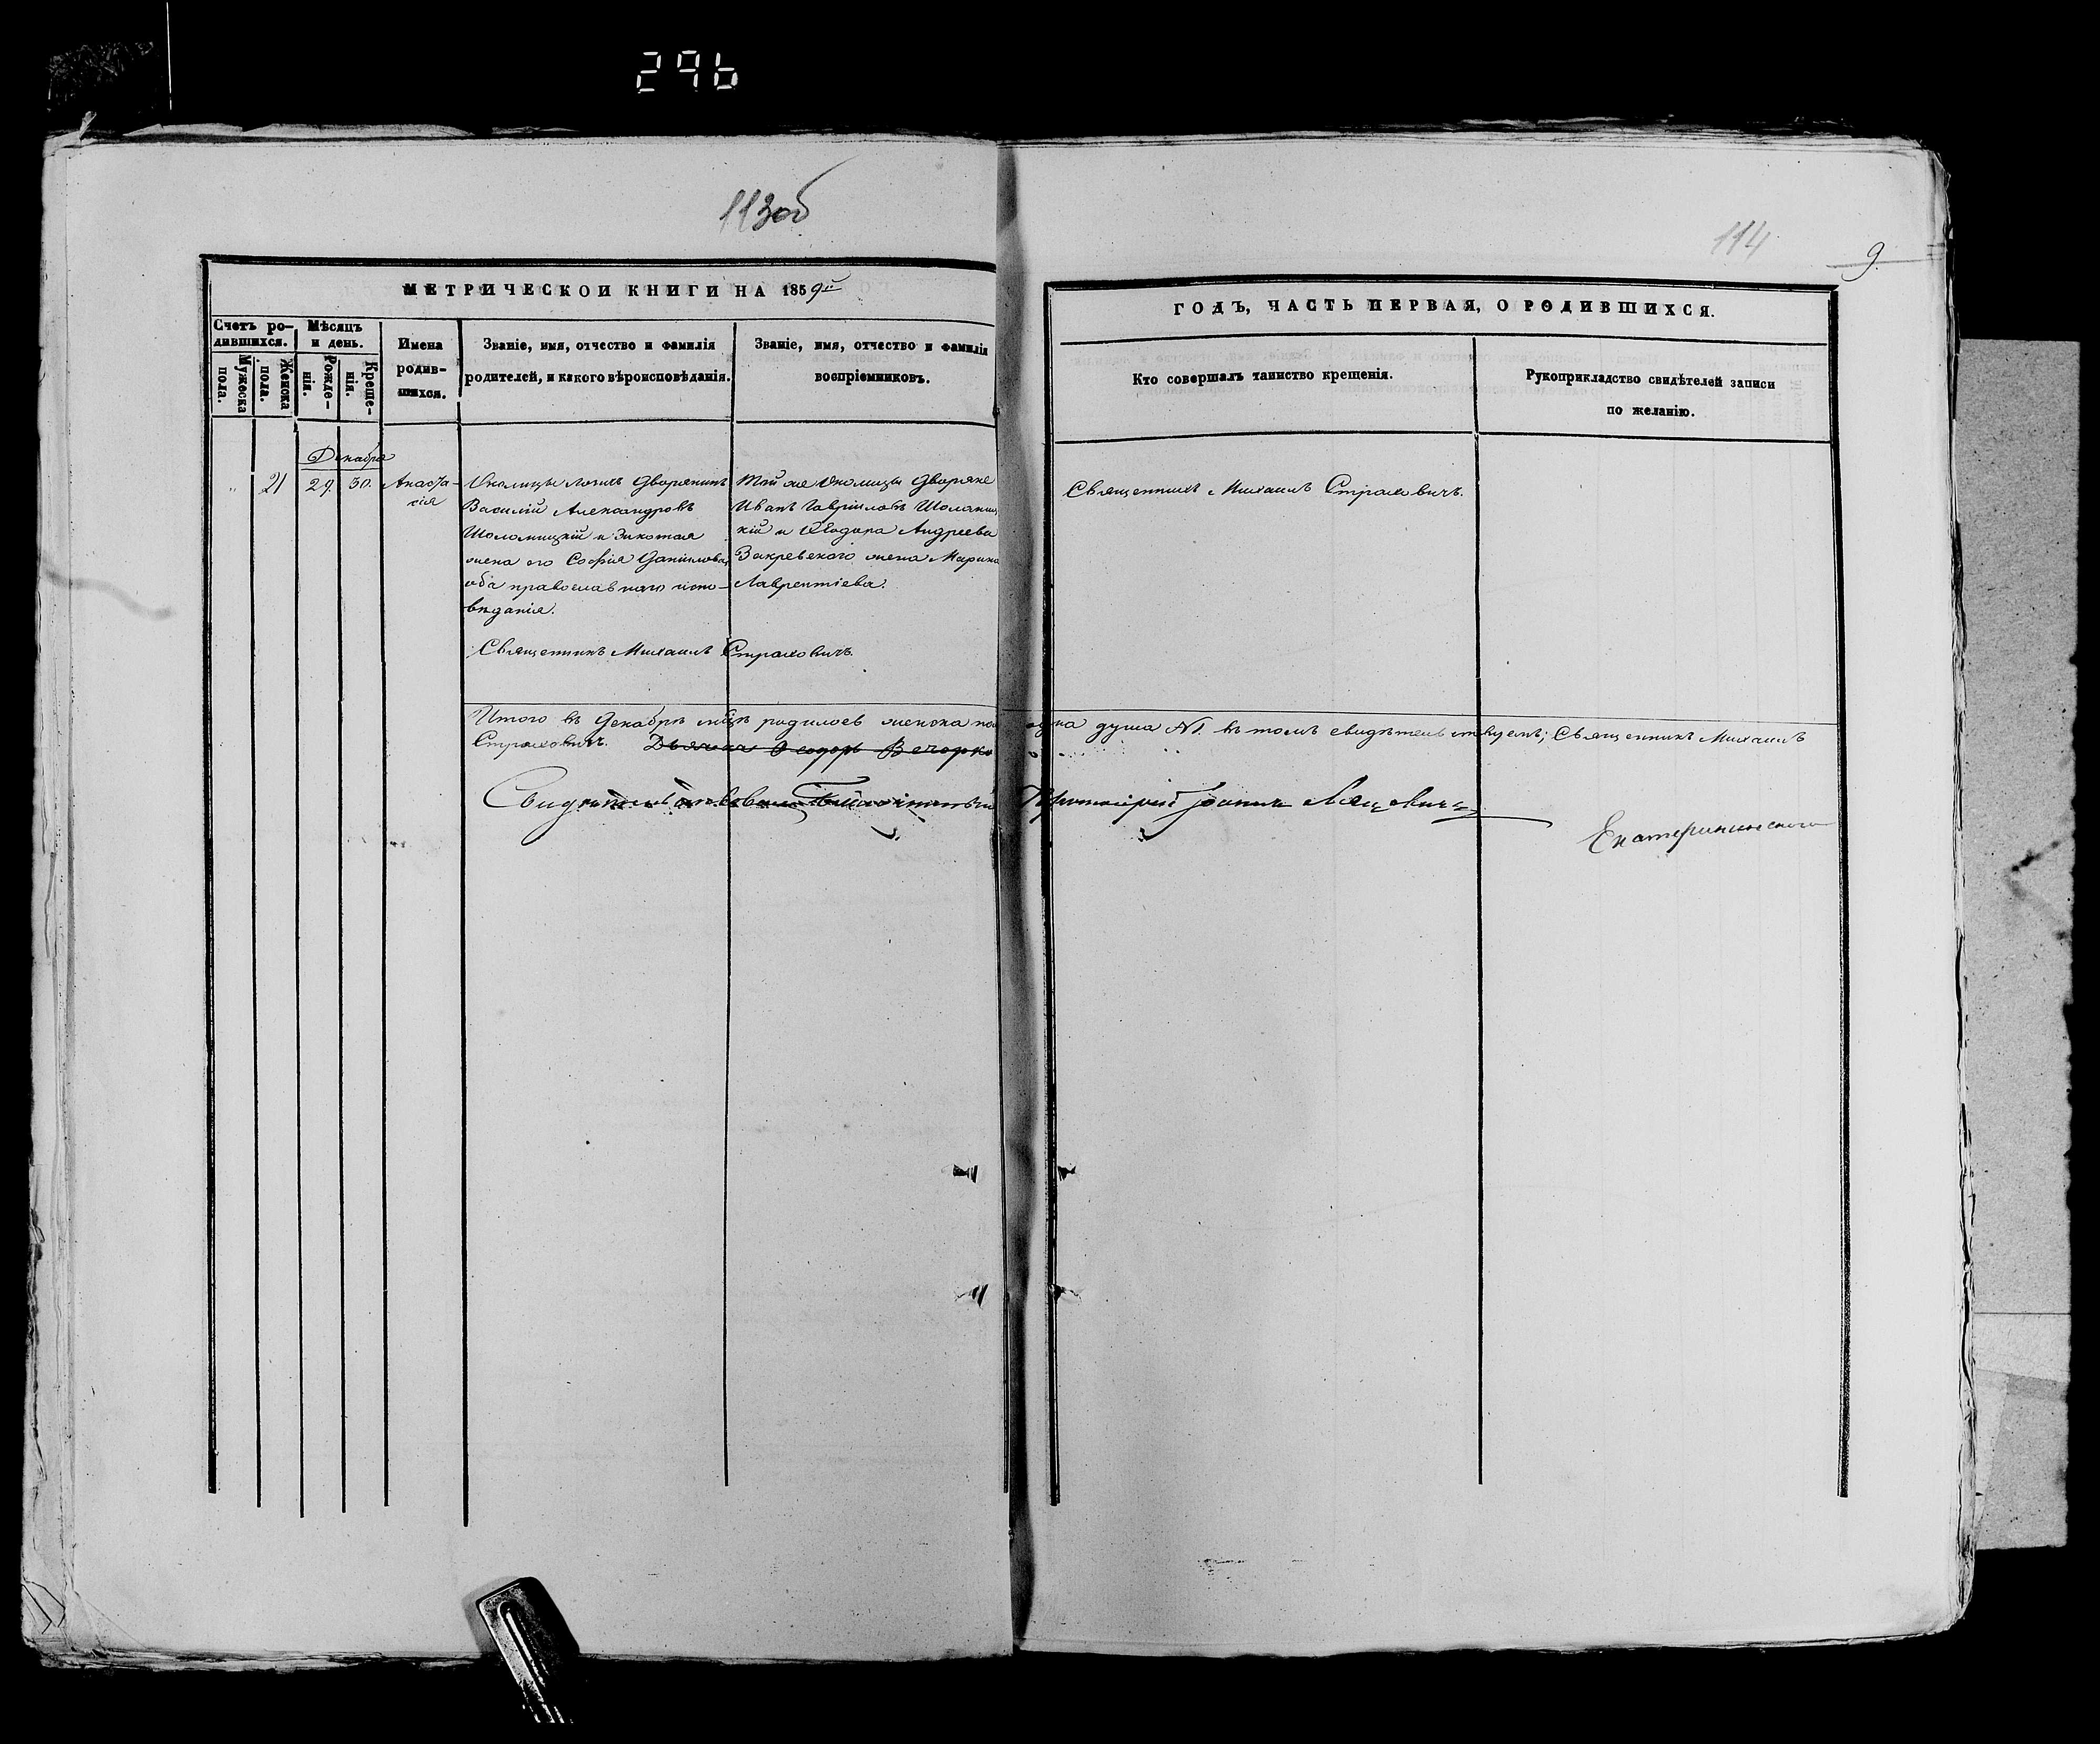 296
113об
114
9.
МЕТРИЧЕСКОЙ КНИГИ НА 1859й
ГОДЪ, ЧАСТЬ ПЕРВАЯ, О РОДИВШИХСЯ.
Счетъ ро-
дившихся.
Мужеска
пола.
Женска
пола.
Мѣсяцъ
и день.
Рожде-
нія.
Креще-
нія.
Имена
родив-
шихся.
Званіе, имя, отчество и фамилія
родителей, и какого вѣроисповѣданія.
Званіе, имя, отчество и фамилія
воспріемниковъ.
Кто совершалъ таинство крещенія.
Рукоприкладство свидѣтелей записи
по желанію.
Декабря
21
29.
30.
Анаста-
сія
Околицы Дворянинъ
Василій Александровъ
Шоломицкій и Законная
жена его Софія Даниилова
оба православнаго испо-
вѣданія.
Священникъ Михаилъ Страховичъ.
Той же Околицы Дворяне
Иванъ Гавріиловъ Шоломиц
кій и Ѳеодора Андреева
Закревскаго жена Марина
Лаврентіева.
Священникъ Михаилъ Страховичъ.
Итого въ Декабрѣ мцѣ родилось женска пол одна душа №1. въ томъ свидѣтельствуемъ; Священникъ Михаилъ
Страховичъ. Дьячокъ Ѳеодоръ Вечорко
Протоіерей Іоаннъ
Екатерининскаго